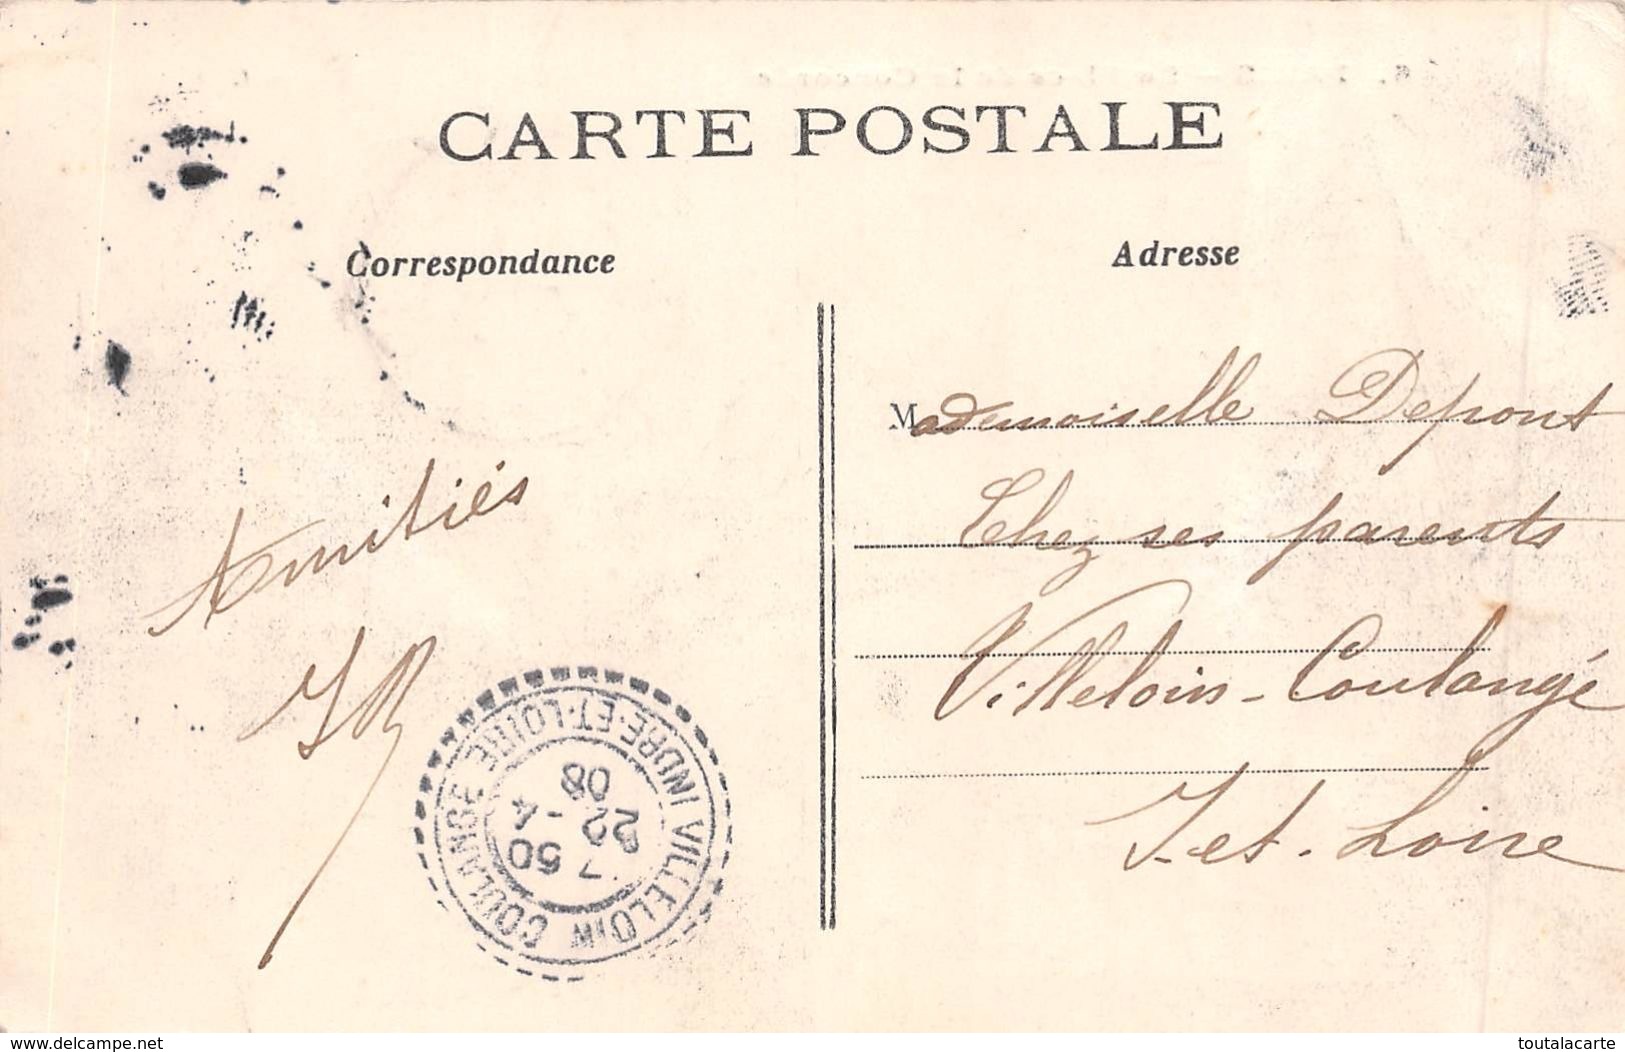 CARTE POSTALE
Correspondance
Adresse
Mademoiselle Depont
Chez ses parents
Villeloin-Coulangé
I-et-Loire
Amitiés
VILLELOIN COULANGE INDRE-ET-LOIRE
7 50
22 - 4
08
www.delcampe.net
toutalacarte